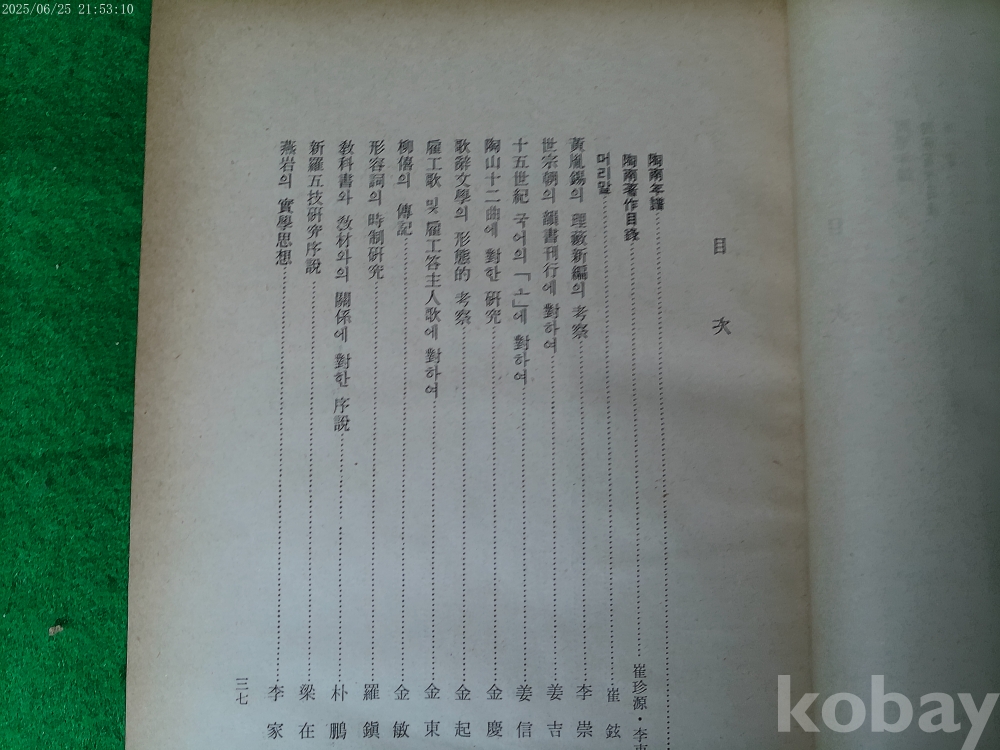 2025/06/25 21:53:10
目次
陶南年譜
陶南著作目錄 崔珍源・李
머리말 崔鉉
黃胤錫의 理藪新編의 考察 李崇
世宗朝의 韻書刊行에 對하여 姜吉
十五世紀 국어의 「ㅗ」에 對하여 姜信
陶山十二曲에 對한 硏究 金慶
歌辭文學의 形態的 考察 金起
雇工歌 및 雇工答主人歌에 對하여 金東
柳僖의 傳記 金敏
形容詞의 時制硏究 羅鎭
敎科書와 敎材와의 關係에 對한 序說 朴鵬
新羅五技硏究序說 梁在
燕岩의 實學思想 李家
三七
kobay